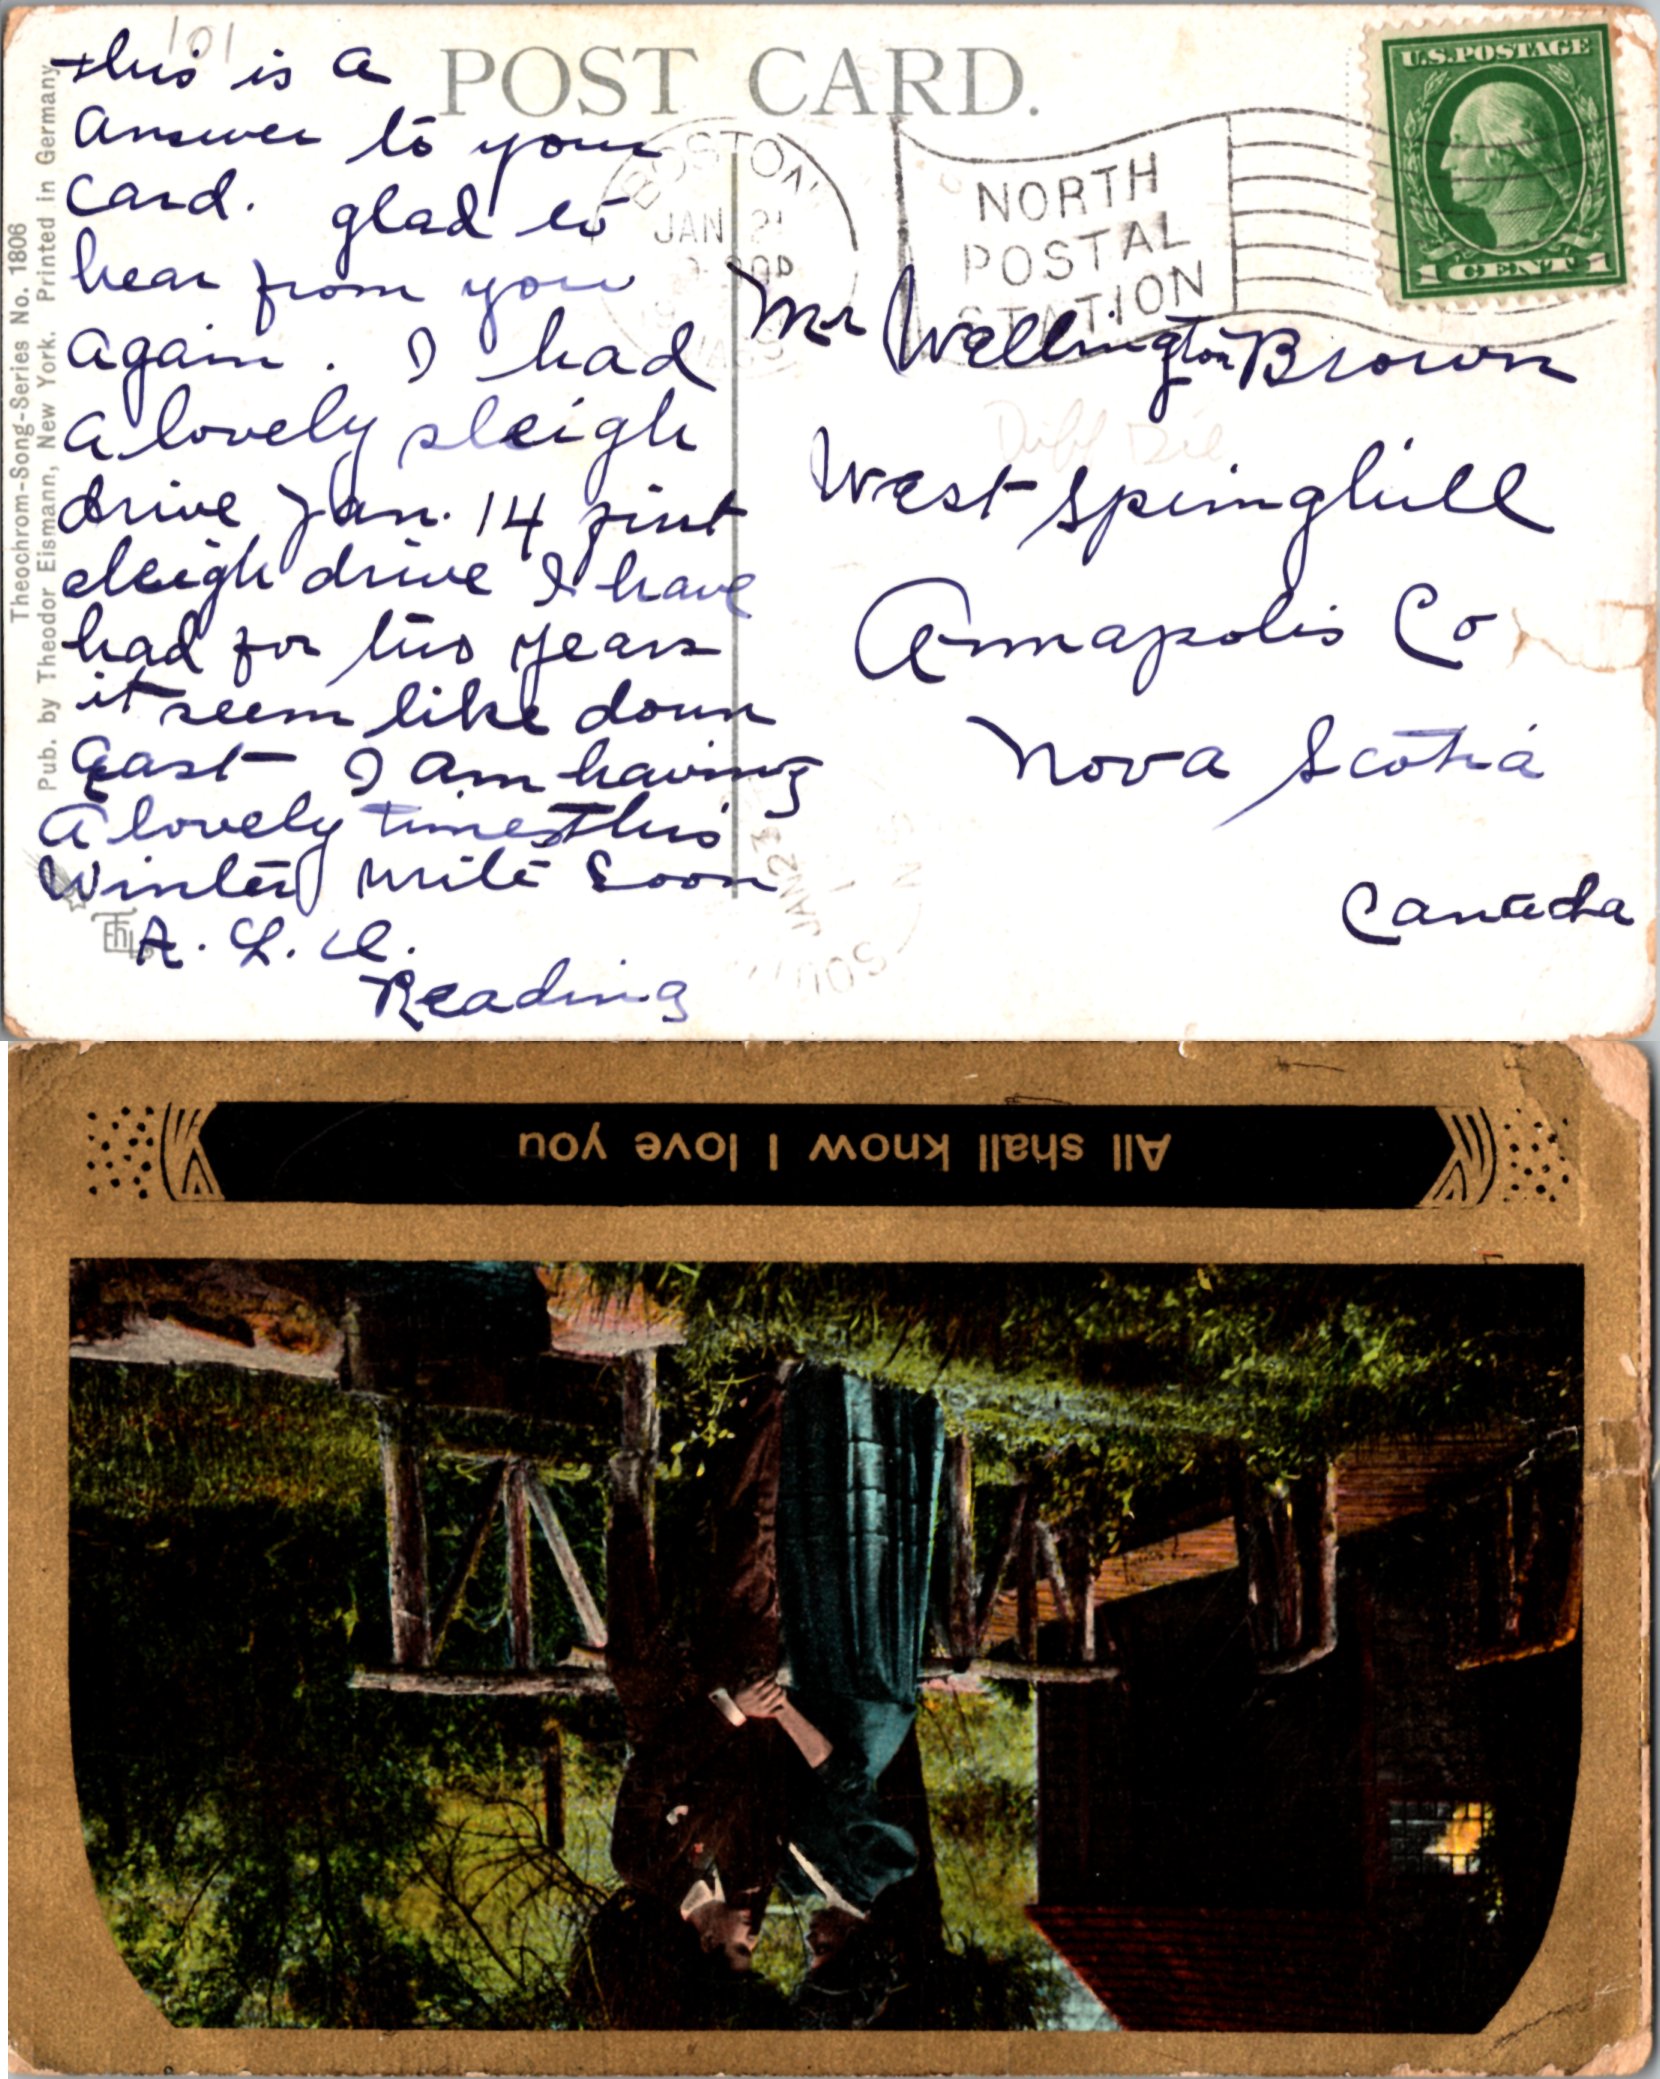 101
POST CARD.
U.S. POSTAGE
1 CENT 1
BOSTON
JAN 21
MASS
NORTH
POSTAL
STATION
Theochrom-Song-Series No. 1806
Pub. by Theodor Eismann, New York. Printed in Germany
this is a
answer to your
card. glad to
hear from you
again. I had
a lovely sleigh
drive Jan. 14 first
sleigh drive I have
had for two years
it seem like down
east I am having
a lovely times this
winter write soon
A. L. D.
Reading
Mr Wellington Brown
West Springhill
Annapolis Co
Nova Scotia
Canada
JAN 23
All shall know I love you